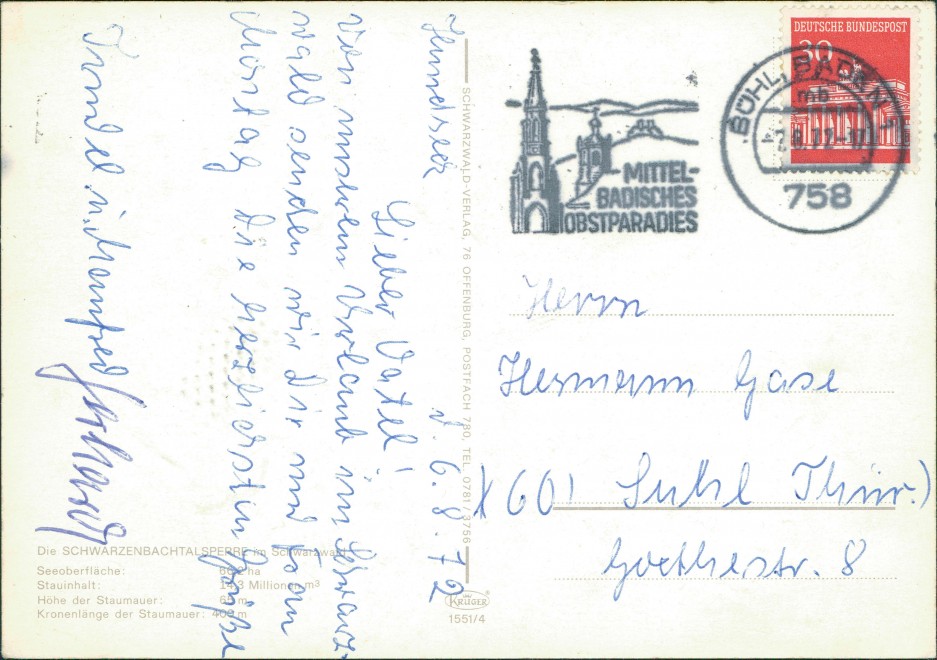 Hundseck d. 6.8.72
Lieber Vater!
Von unserem Urlaub im Schwarz-
wald senden wir Dir und
die herzlichsten Grüße
Trondel u. Manfred
Die SCHWARZENBACHTALSPERRE im Schwarzwald
Seeoberfläche: ha
Stauinhalt: 14,3 Millionen m³
Höhe der Staumauer: m
Kronenlänge der Staumauer: 400 m
SCHWARZWALD-VERLAG, 76 OFFENBURG, POSTFACH 780, TEL. 0781/3756
KRÜGER
1551/4
MITTEL-
BADISCHES
OBSTPARADIES
DEUTSCHE BUNDESPOST
30
BÜHL, BADEN 1
mb
758
Herrn
Hermann Gase
X 601 Suhl Thür.)
Goethestr. 8